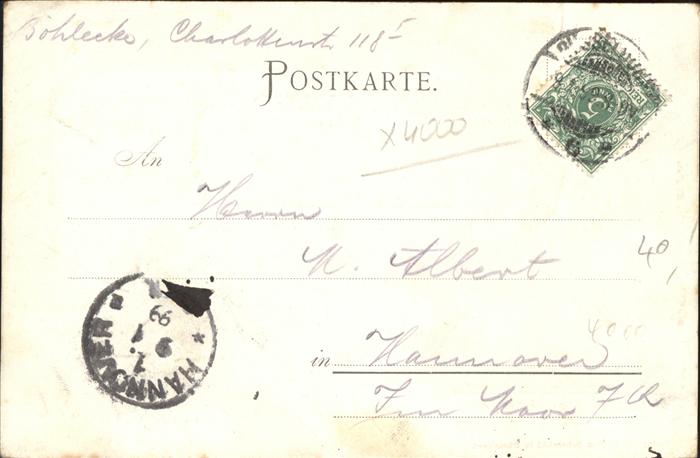 Böhlecke, Charlottenstr 118 I
POSTKARTE.
x 4000
An
Herrn
A. Albert
40,
4000
in Hannover
Im Moor 7
HANNOVER
9 1
99
5